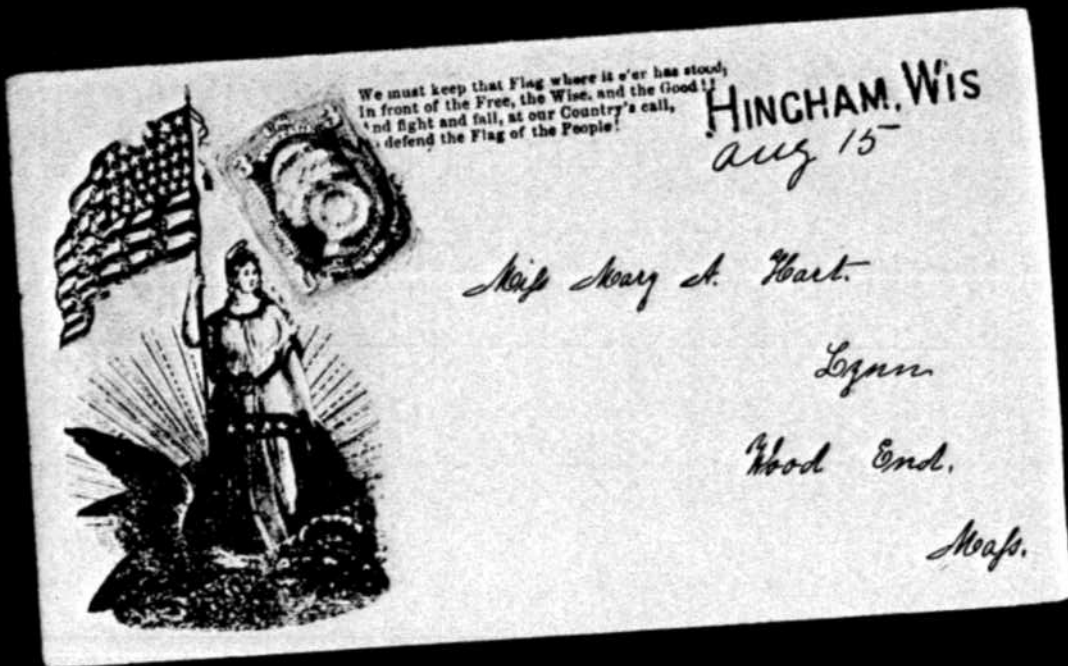 We must keep that Flag where it e'er has stood,
In front of the Free, the Wise, and the Good!!
nd fight and fall, at our Country's call,
defend the Flag of the People!
HINGHAM, WIS
Aug 15
Miſs Mary A. Hart.
Lynn
Wood End.
Maſs.